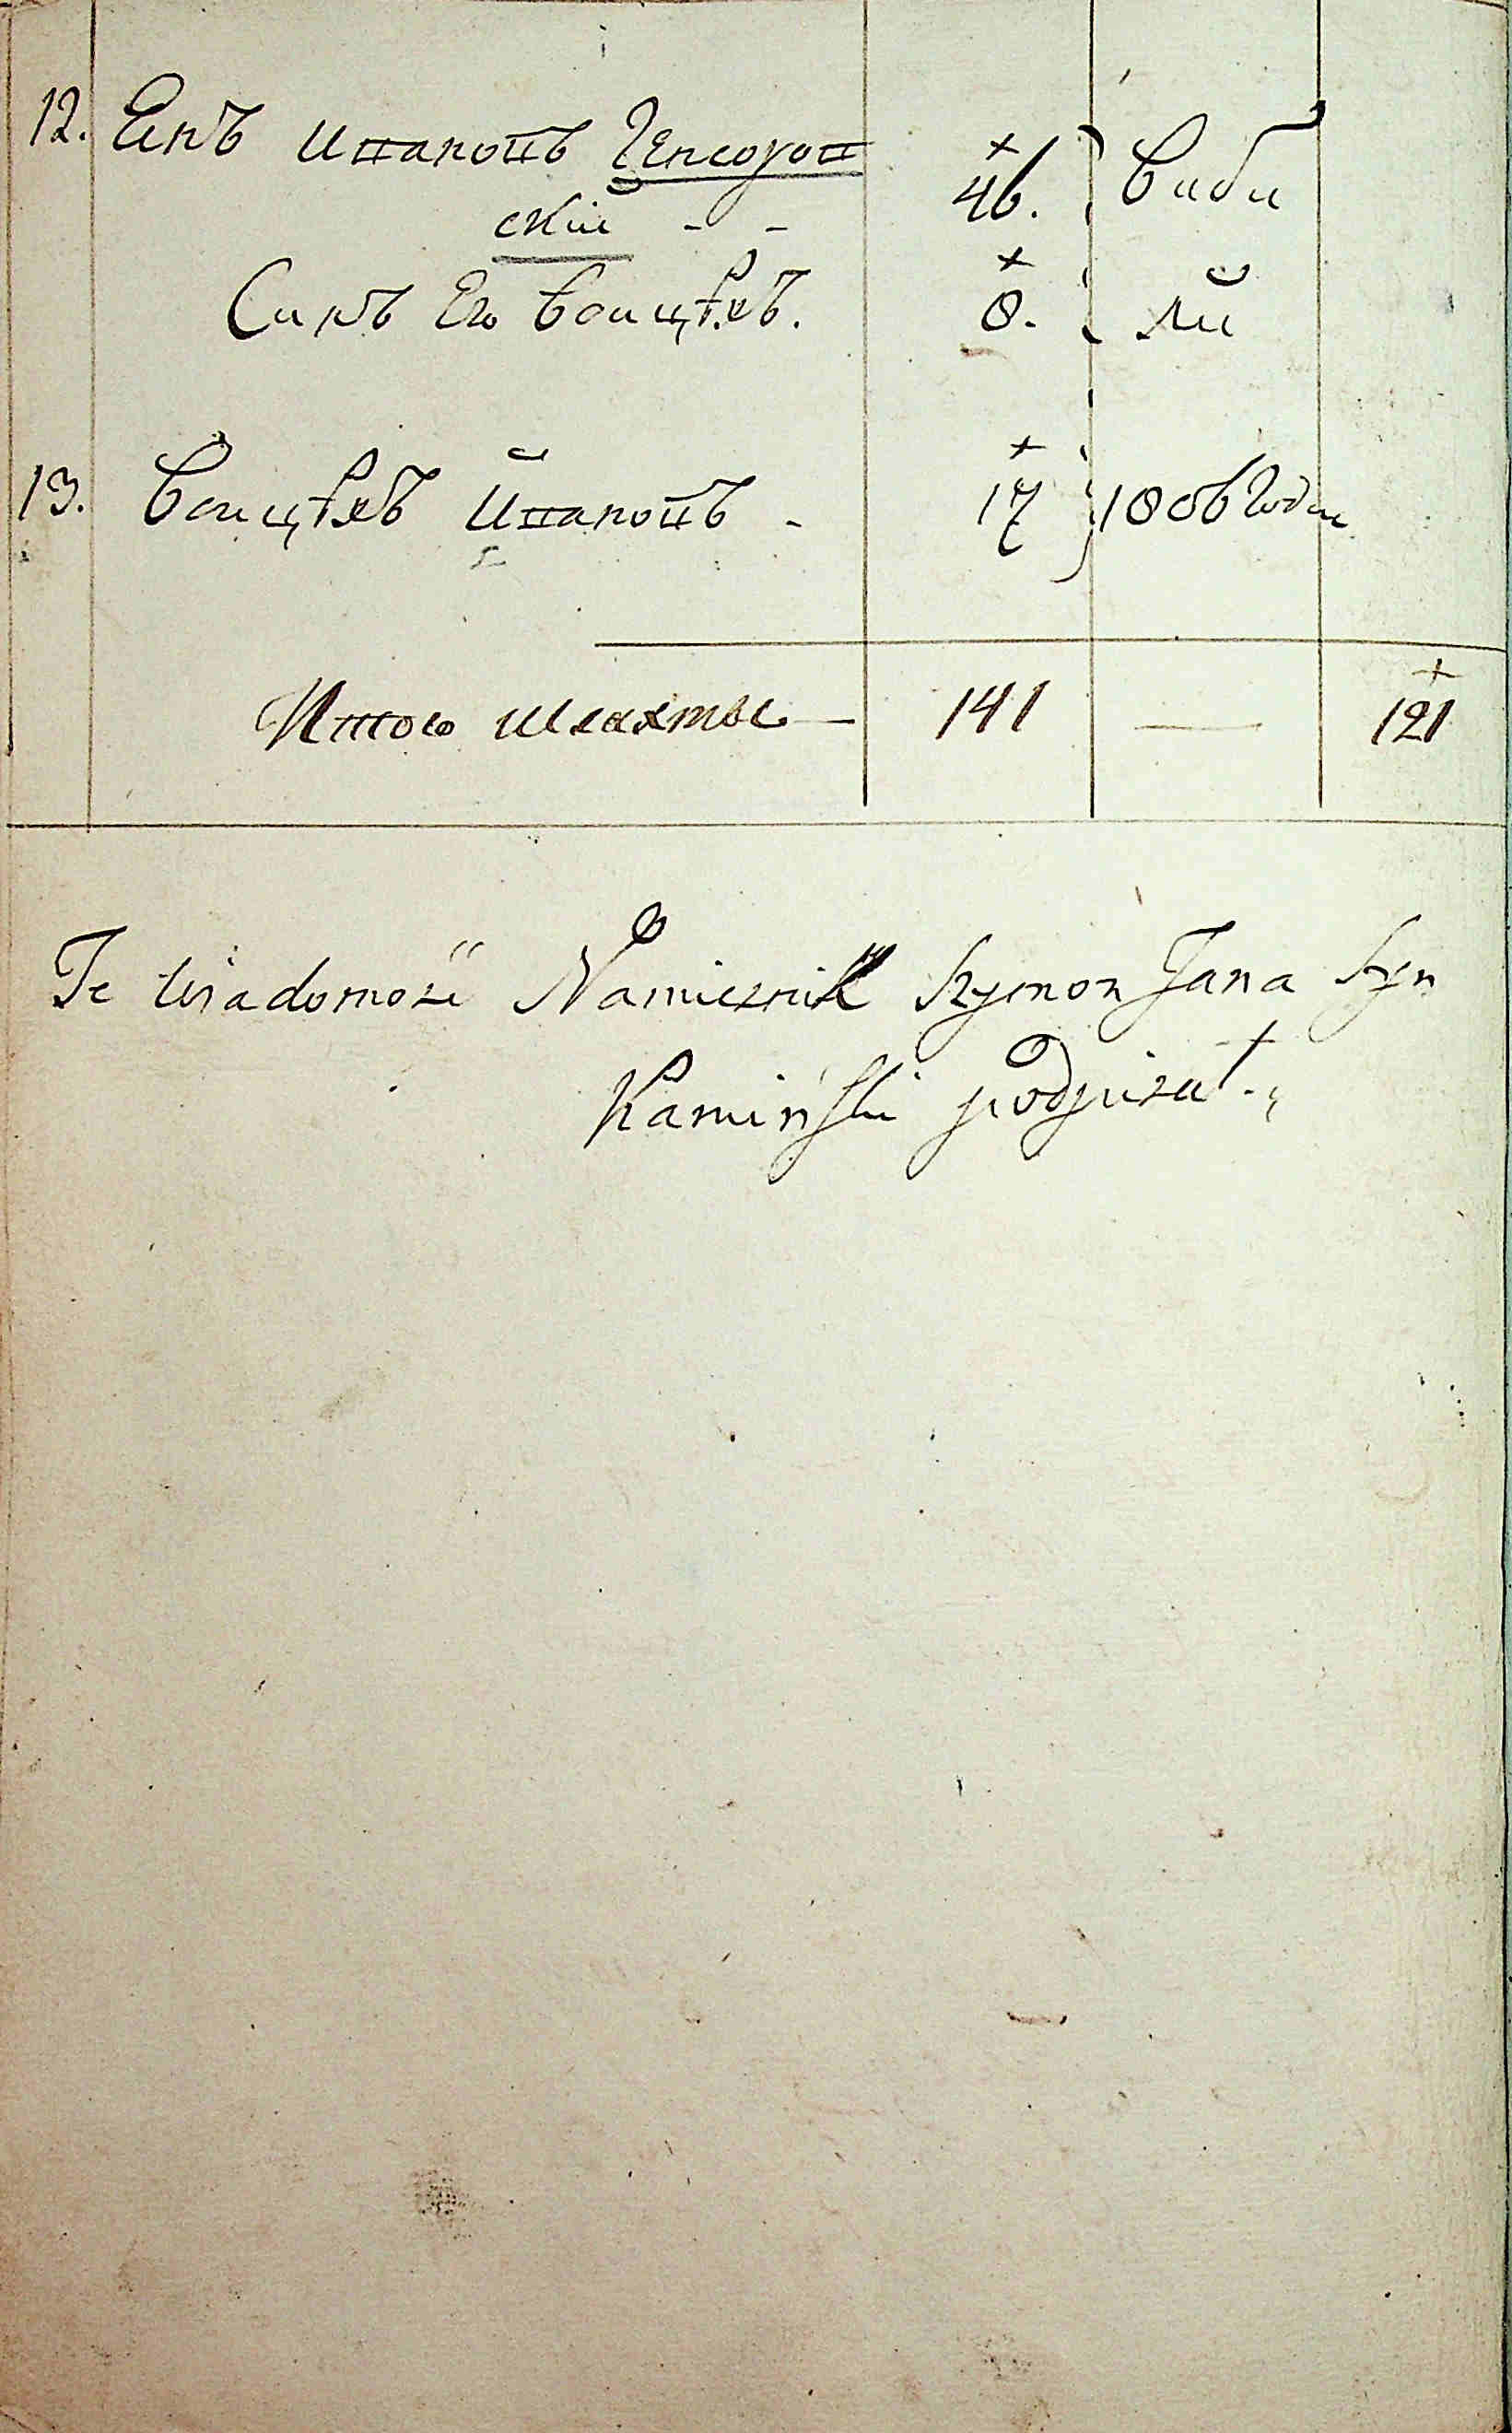 12. Янъ Ивановъ Генсоров
ский - - 46. Виби
Синъ Его Войцѣхъ. 8. лй
13. Войцѣхъ Ивановъ - 17 1806 Годи
Итого шляхты — 141 — 121
Te wiadomość Namiesnik Szymon Jana Syn
Kamiński podpisał.,